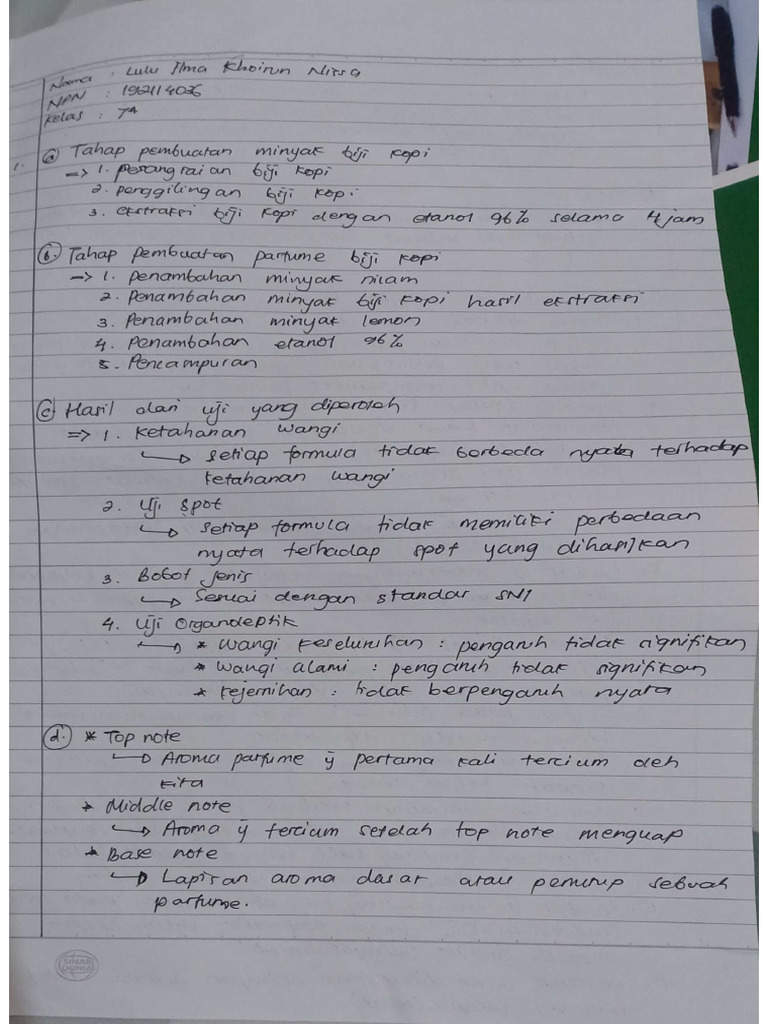 Nama : Lulu Ilma Khoirun Nissa
NPN : 1962114036
Kelas : 7A
1. a Tahap pembuatan minyak biji kopi
=> 1. perangraian biji kopi
2. penggilingan biji kopi
3. ekstraksi biji kopi dengan etanol 96% selama 4 jam
b. Tahap pembuatan parfume biji kopi
-> 1. penambahan minyak nilam
2. Penambahan minyak biji kopi hasil ekstraksi
3. Penambahan minyak lemon
4. Penambahan etanol 96%
5. Pencampuran
c Hasil dari uji yang diperoleh
=> 1. Ketahanan wangi
↳ setiap formula tidak berbeda nyata terhadap
ketahanan wangi
2. Uji spot
↳ setiap formula tidak memiliki perbedaan
nyata terhadap spot yang dihasilkan
3. Bobot jenis
↳ Sesuai dengan standar SNI
4. Uji Organdeptik
↳ * wangi keseluruhan : pengaruh tidak signifikan
* wangi alami : pengaruh tidak signifikan
* kejernihan : tidak berpengaruh nyata
d. * Top note
↳ Aroma parfume ÿ pertama kali tercium oleh
kita
* Middle note
↳ Aroma ÿ tercium setelah top note menguap
* Base note
↳ Lapisan aroma dasar atau penutup sebuah
parfume.
SINAR
DUNIA